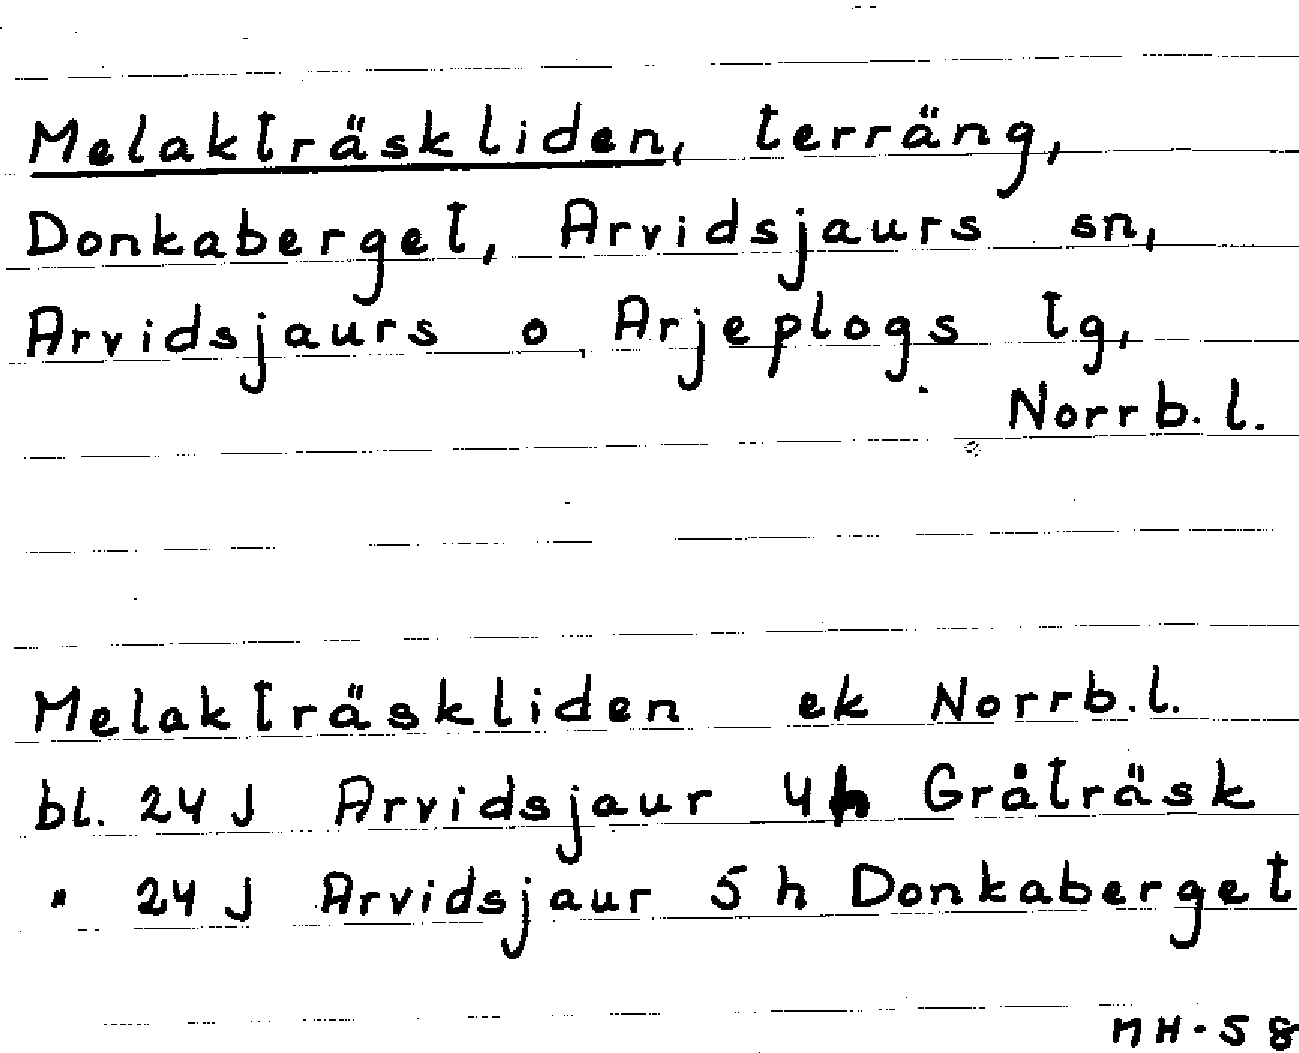 Melakträskliden, terräng,
Donkaberget, Arvidsjaurs sn,
Arvidsjaurs o Arjeplogs tg,
Norrb. l.
Melakträskliden ek Norrb.l.
bl. 24 J Arvidsjaur 4h Gråträsk
" 24 J Arvidsjaur 5 h Donkaberget
MH-58